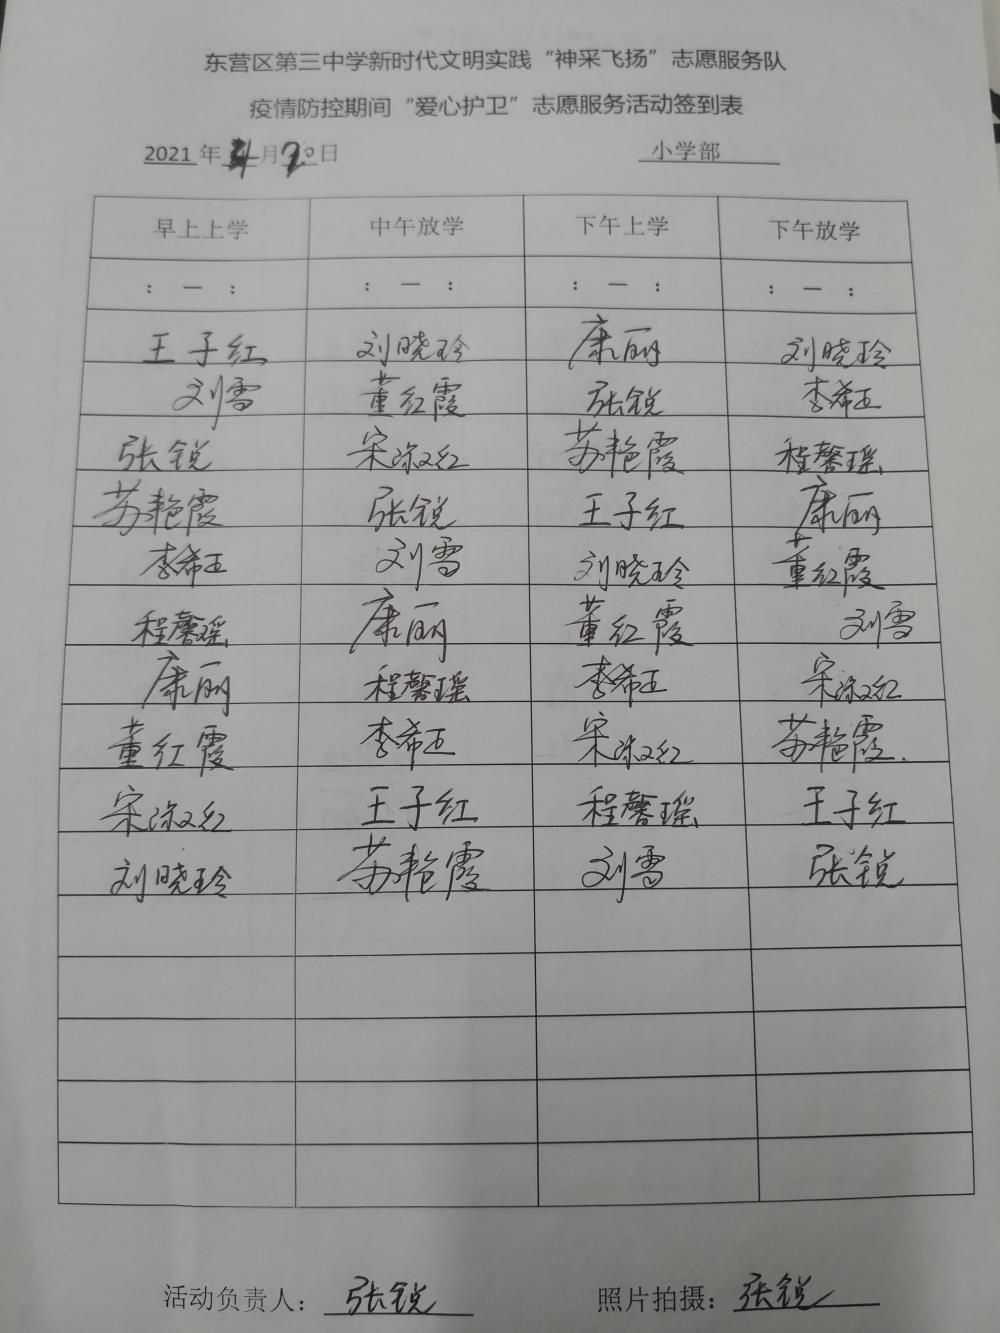 东营区第三中学新时代文明实践“神采飞扬”志愿服务队
疫情防控期间“爱心护卫”志愿服务活动签到表
2021 年 4 月 20 日 小学部
早上上学 中午放学 下午上学 下午放学
： — ： ： — ： ： — ： ： — ：
王子红 刘晓玲 康丽 刘晓玲
刘雪 董红霞 张锐 李希正
张锐 宋淑红 苏艳霞 程馨瑶
苏艳霞 张锐 王子红 康丽
李希正 刘雪 刘晓玲 董红霞
程馨瑶 康丽 董红霞 刘雪
康丽 程馨瑶 李希正 宋淑红
董红霞 李希正 宋淑红 苏艳霞
宋淑红 王子红 程馨瑶 王子红
刘晓玲 苏艳霞 刘雪 张锐
活动负责人： 张锐 照片拍摄： 张锐